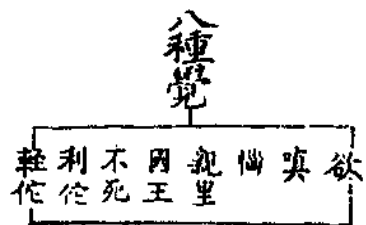 八種覺
欲
嗔
惱
親里
國王
不死
利佗
軽佗